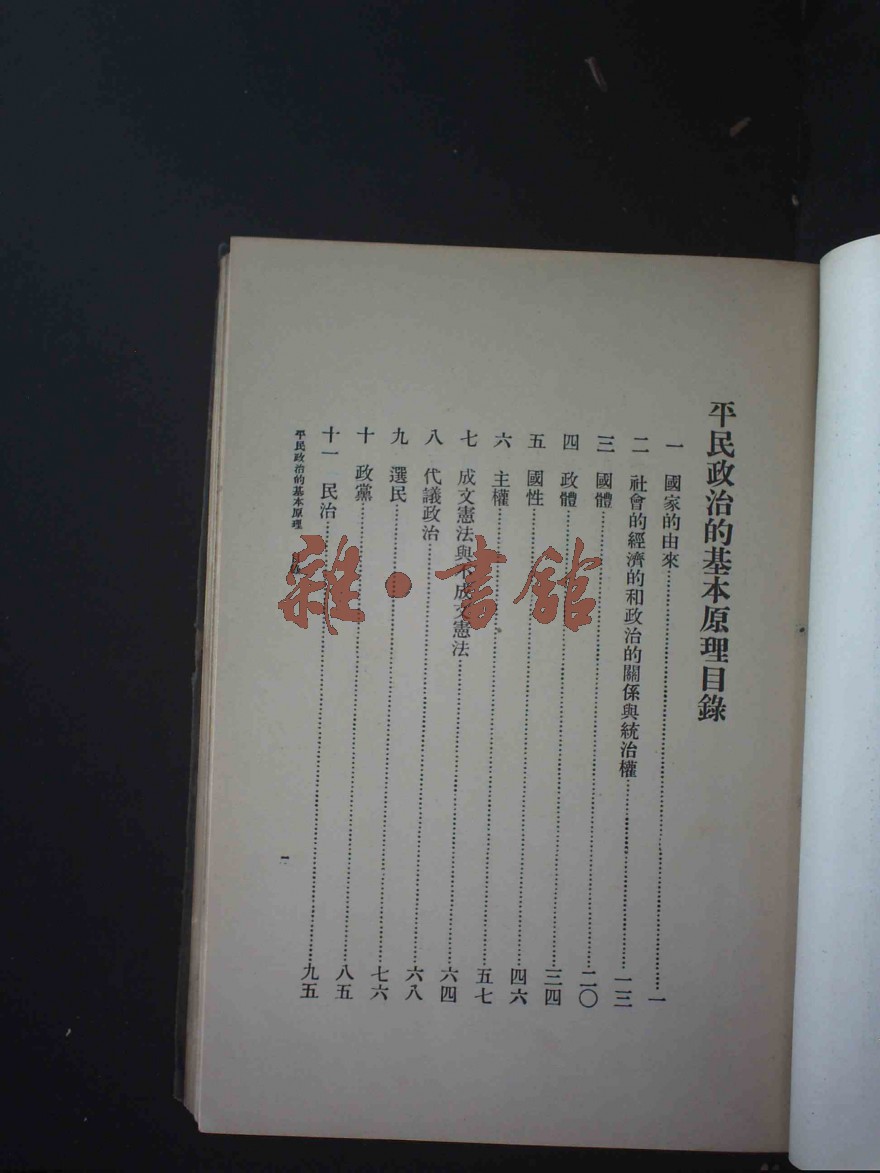 平民政治的基本原理目錄
一　國家的由來……一
二　社會的經濟的和政治的關係與統治權……一三
三　國體……二〇
四　政體……三四
五　國性……四六
六　主權……五七
七　成文憲法與不成文憲法……六四
八　代議政治……六八
九　選民……七六
十　政黨……八五
十一　民治……九五
平民政治的基本原理　目錄
一
雜·書館